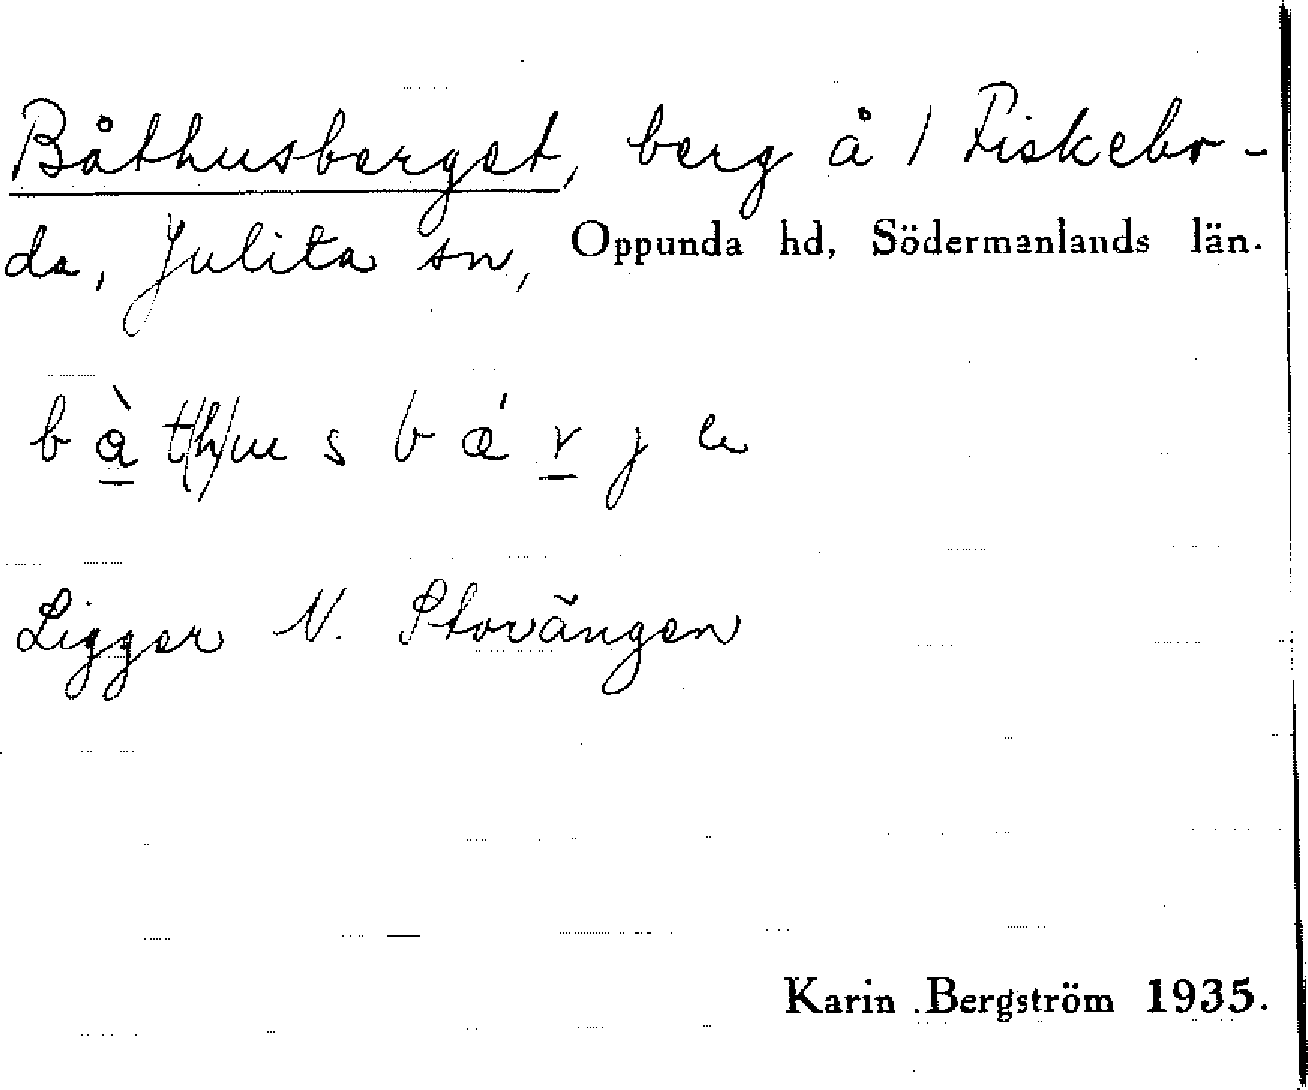 Båthusberget, berg å / Fiskebo-
da, Julita sn, Oppunda hd, Södermanlands län.
Ligger N. Storängen
Karin Bergström 1935.